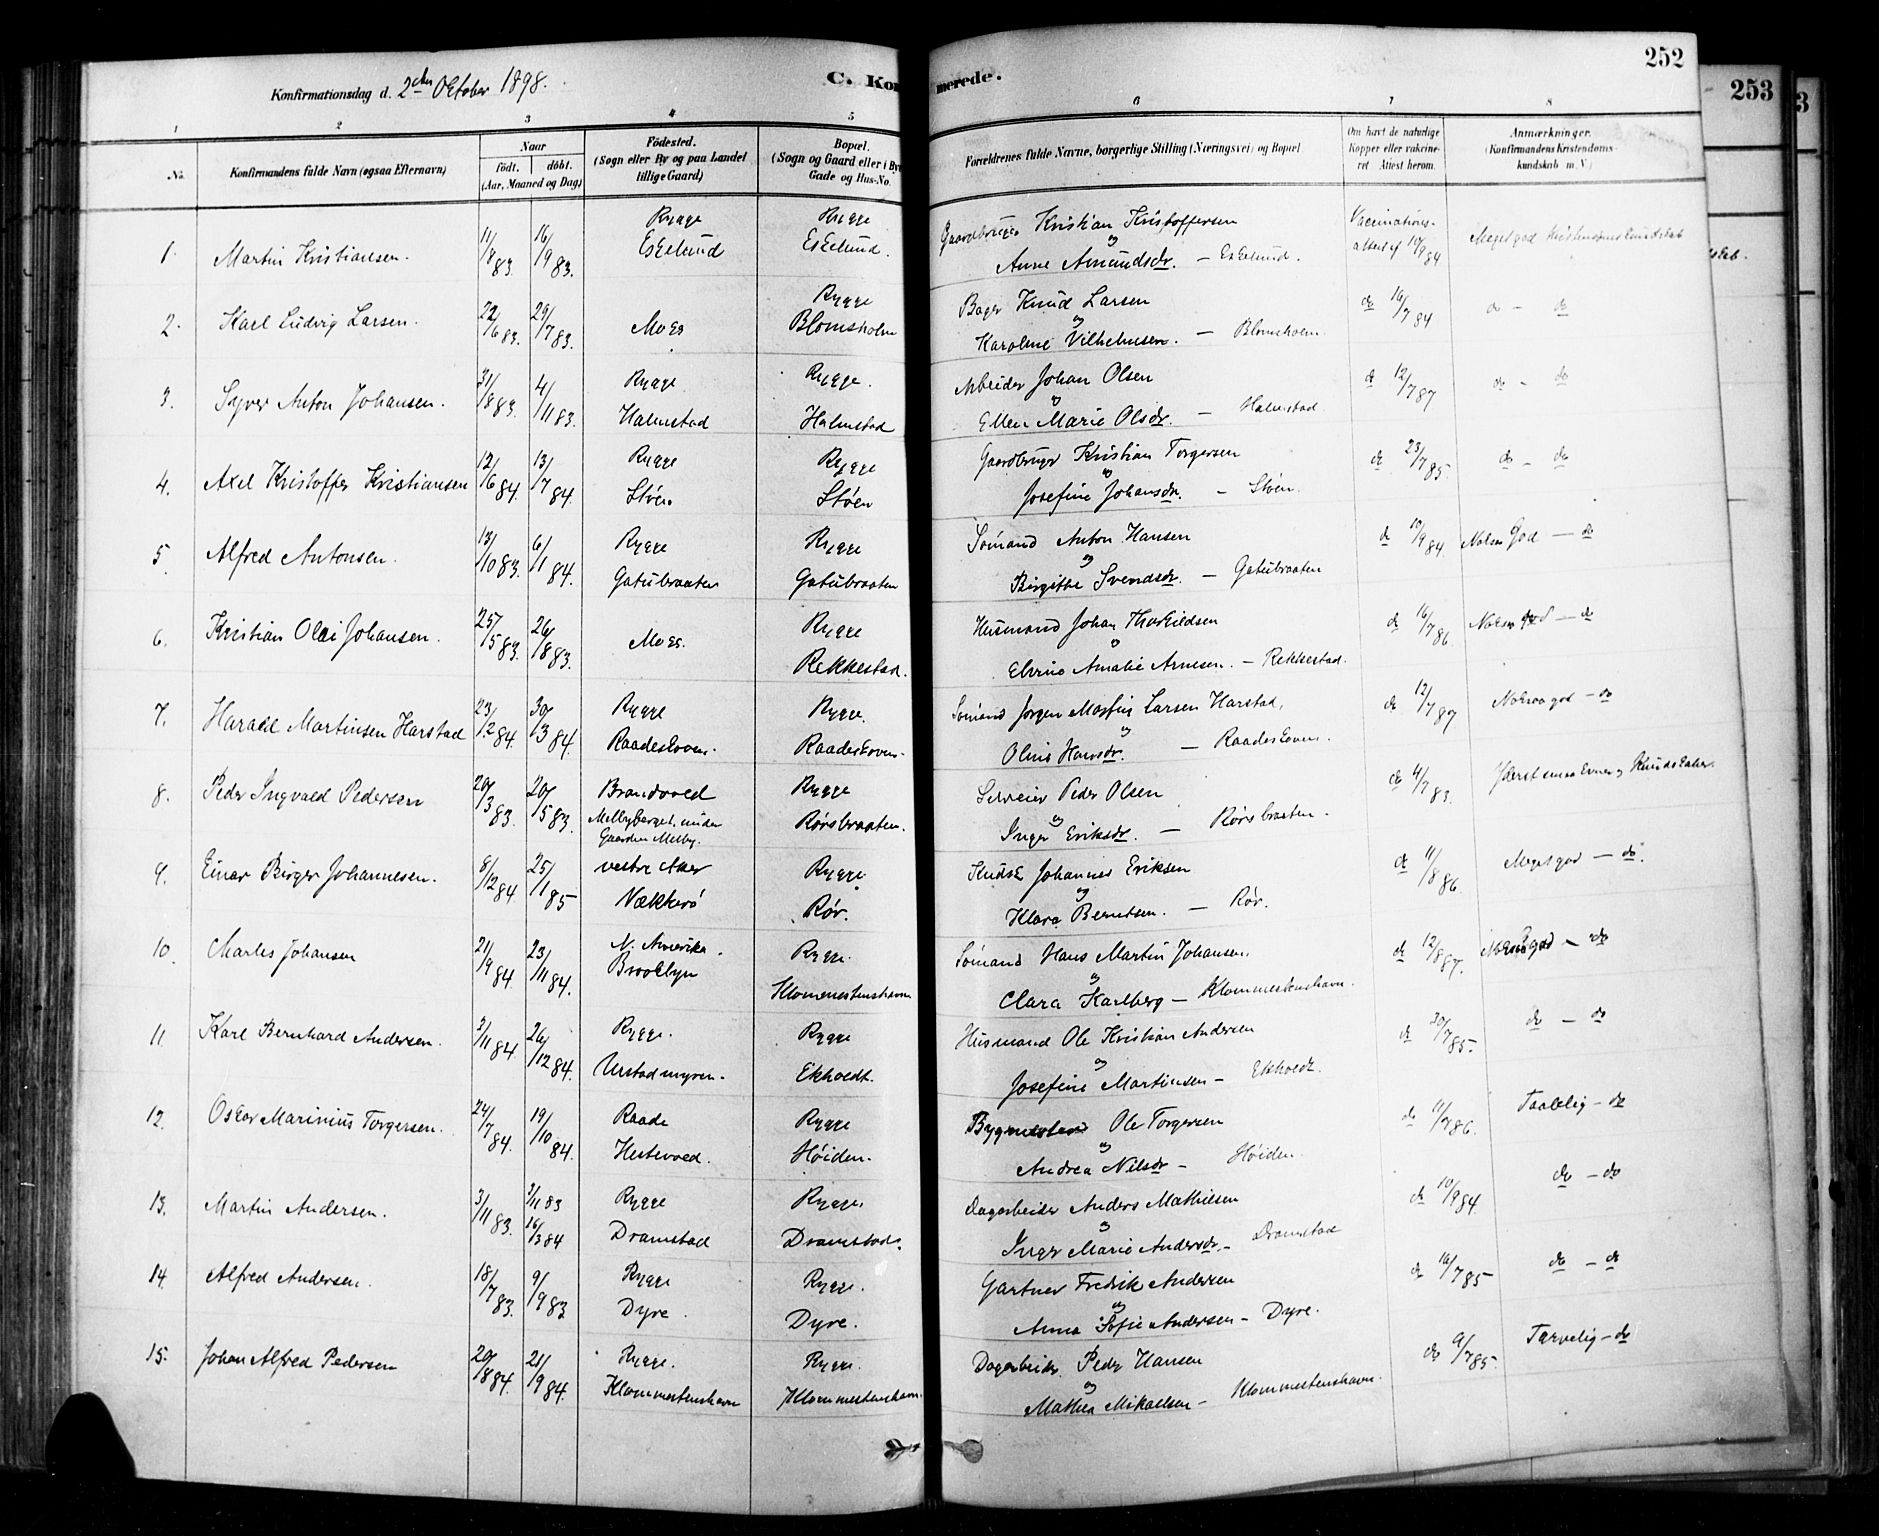 252
253
Konfirmationsdag d. 2den Oktober 1898.
C. Kon
merede.
1 2 3 4 5 6 7 8
No.
Konfirmandens fulde Navn (ogsaa Efternavn)
Naar
født. døbt.
(Aar, Maaned og Dag)
Födested.
(Sogn eller By og paa Landet
tillige Gaard)
Bopæl.
(Sogn og Gaard eller i By
Gade og Hus-No.
Forældrenes fulde Navne, borgerlige Stilling (Næringsvei) og Bopæl
Om havt de naturlige
Kopper eller vakcine-
ret Attest herom.
Anmærkninger.
(Konfirmandens Kristendoms-
kundskab m. V.)
1. Martin Kristiansen. 11/8 83. 16/9 83. Rygge Eskelund Rygge Eskelund. Gaardbruger Kristian Kristoffersen og Anne Amundsdr. – Eskelund. Vaccinations-attest af 10/9 84 Meget god Kristendomskundskab
2. Karl Ludvig Larsen. 22/6 83. 29/7 83. Moss Rygge Blomsholm Bager Knud Larsen og Karoline Vilhelmsen. – Blomsholm. do 16/7 84 do – do
3. Syver Anton Johansen. 31/8 83. 4/11 83. Rygge Halmstad Rygge. Halmstad Arbeider Johan Olsen og Ellen Marie Olsdr. – Halmstad. do 12/7 87 do – do
4. Axel Kristoffer Kristiansen 12/6 84. 13/7 84. Rygge Støen Rygge Støen Gaardbruger Kristian Torgersen og Josefine Johansdr. – Støen. do 23/7 85. do – do
5. Alfred Antonsen. 13/10 83. 6/1 84. Rygge Gatubraaten Rygge Gatubraaten Sømand Anton Hansen og Birgitte Svendsdr. – Gatubraaten do 10/9 84. Noksaa God – do
6. Kristian Olai Johansen. 25/5 83. 26/8 83. Moss. Rygge Rekkestad. Husmand Johan Thorkildsen og Elvine Amalie Arnesen. – Rekkestad. do 16/7 86. Noksaa god – do
7. Harald Martinsen Harstad 23/12 84. 30/3 84. Rygge Raadeskoven. Rygge. Raadeskoven. Sømand Jørgen Martin Larsen Harstad, og Oline Hansdr. – Raadeskoven. do 12/7 87 Noksaa god – do
8. Peder Ingvald Pedersen 20/3 83. 20/5 83. Brandvold Melbyberget under Gaarden Melby. Rygge Rørsbraaten. Peder Olsen og Inger Eriksdr. – Rørsbraaten. do 4/7 83. Yderst smaa Evner og Kundskaber.
9. Einar Birger Johannesen. 8/12 84. 25/1 85 vestre Aker Vækkerø Rygge Rør. Kudsk Johannes Eriksen og Klara Berntsen. – Rør. do 11/8 86. Meget god – do.
10. Charles Johansen 21/9 84. 23/11 84. N. Amerika. Brooklyn Rygge. Klommestenshavn Sømand Hans Martin Johansen. og Clara Karlberg – Klommestenshavn. do 12/8 87. Noksaa god – do
11 Karl Bernhard Andersen. 3/11 84. 26/12 84. Rygge. Urstadmyren. Rygge Ekholdt. Husmand Ole Kristian Andersen og Josefine Martinsen – Ekholdt. do 30/7 85. do – do
12. Oskar Marinius Torgersen. 24/7 84. 19/10 84. Raade Hestevold. Rygge Høiden. Bygmester Ole Torgersen og Andrea Nilsdr – Høiden. do 11/7 86. Taalelig – do
13. Martin Andersen. 3/11 83. 3/11 83 16/3 84 Rygge Dramstad Rygge. Dramstad. Dagarbeider Anders Mathiesen og Inger Marie Andersdr. – Dramstad do 10/9 84. do – do
14. Alfred Andersen. 18/7 83. 9/9 83 Rygge Dyre. Rygge. Dyre. Gartner Fredrik Andersen og Anna Sofie Andersen – Dyre. do 16/7 85 do – do
15. Johan Alfred Pedersen 20/8 84. 21/9 84. Rygge. Klommestenshavn Rygge. Klommestenshavn Dagarbeider Peder Hansen og Mathea Mikaelsen – Klommestenshavn. do 9/7 85. Tarvelig – do